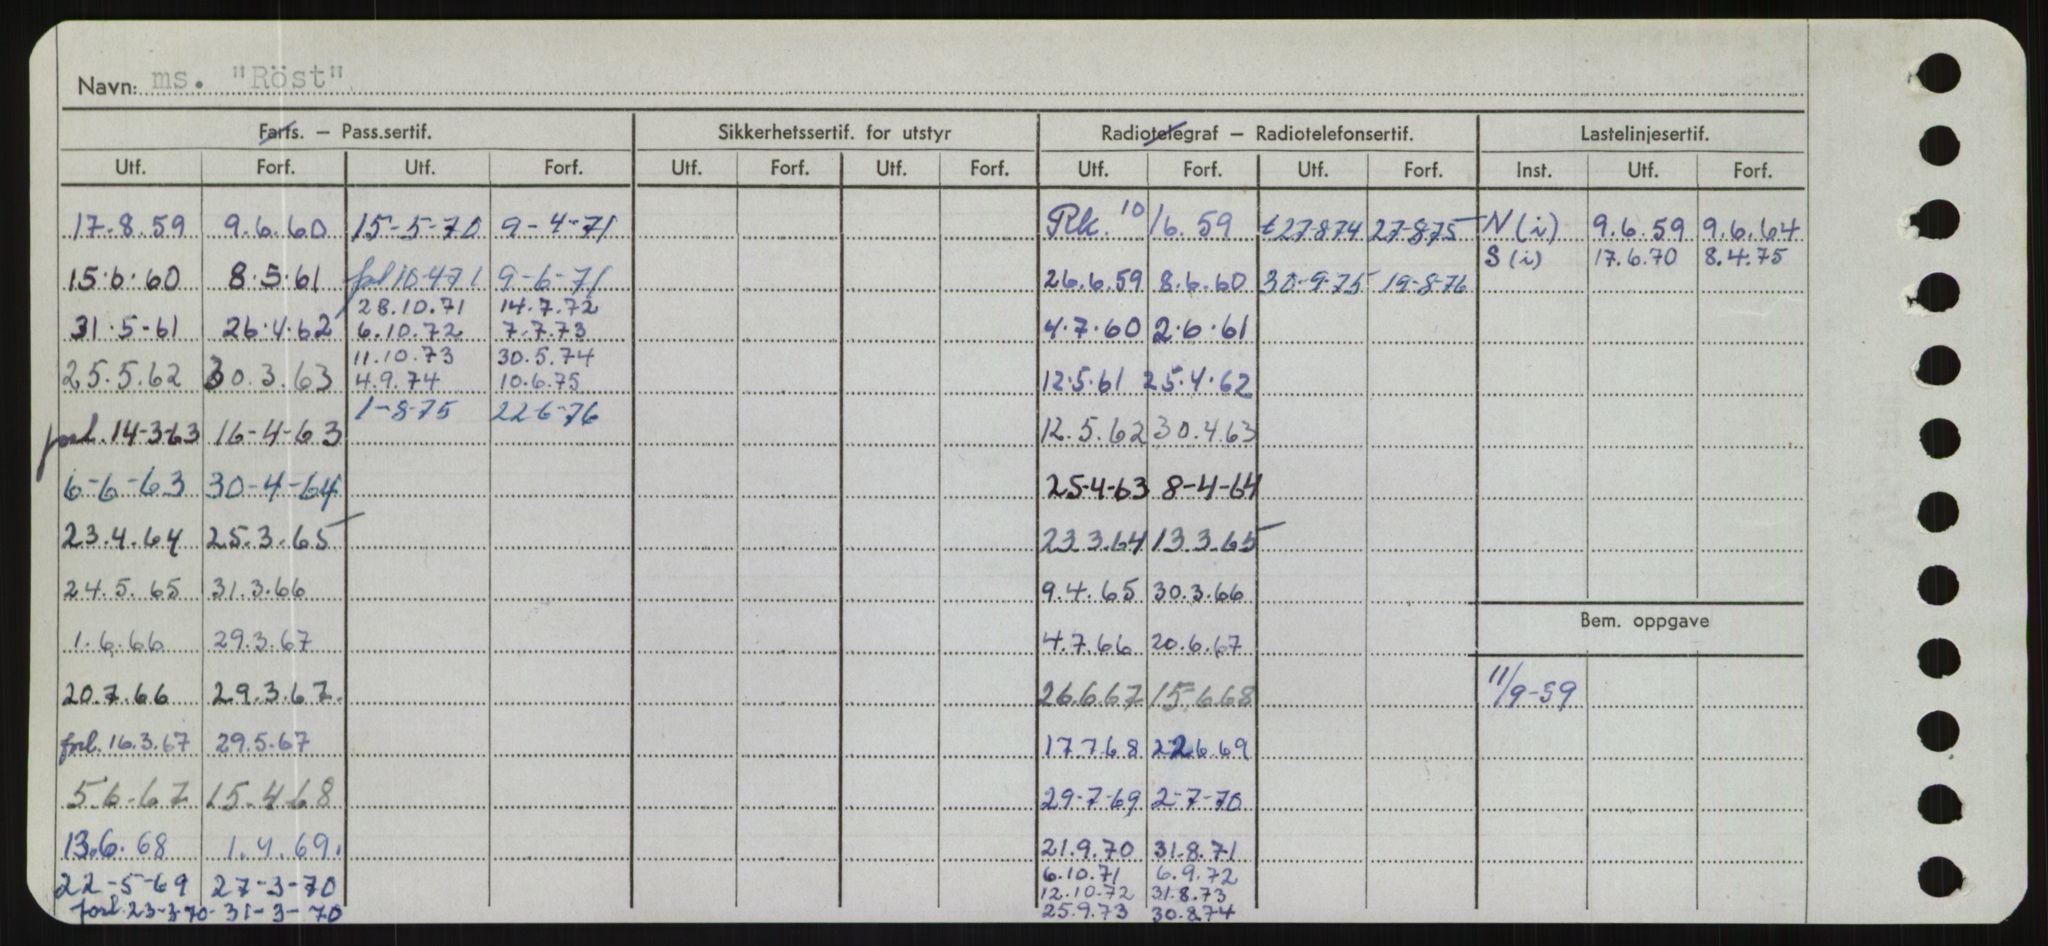 Navn: ms. "Röst"
Farts. – Pass.sertif. Sikkerhetssertif. for utstyr Radiotelegraf – Radiotelefonsertif. Lastelinjesertif.
Utf. Forf. Utf. Forf. Utf. Forf. Utf. Forf. Utf. Forf. Utf. Forf. Inst. Utf. Forf.
17.8.59 9.6.60 15-5-70 9-4-71 Rk. 10/6.59 t27874 27-875 N(i) 9.6.59 9.6.64
S(i) 17.6.70 8.4.75
15.6.60 8.5.61 forl 10-471 9-6-71 26.6.59 8.6.60 30-9-75 19-8-76
28.10.71 14.7.72
31.5-61 26.4.62 6.10.72 7.7.73 4.7.60 2.6.61
11.10.73 30.5.74
25.5.62 30.3.63 4.9.74 10.6.75 12.5.61 25.4.62
1-8-75 22-6-76
forl. 14-3-63 16-4-63 12.5.62 30.4.63
6-6-63 30-4-64 25-4-63 8-4-64
23.4.64 25.3.65 23.3.64 13.3.65
24.5.65 31.3.66 9.4.65 30.3.66
Bem. oppgave
1.6.66 29.3.67 4.7.66 20.6.67
20.7.66 29.3.67. 26.6.67 15.6.68 11/9-59
forl. 16.3.67 29.5.67 17.7.68 22.6.69
5.6.67 15.4.68 29-7-69 2-7-70
13.6.68 1.4.69. 21.9.70 31.8.71
22-5-69 27-3-70 6.10.71 6.9.72
12.10.72 31.8.73
forl. 23-3-70 - 31-3-70 25.9.73 30.8.74